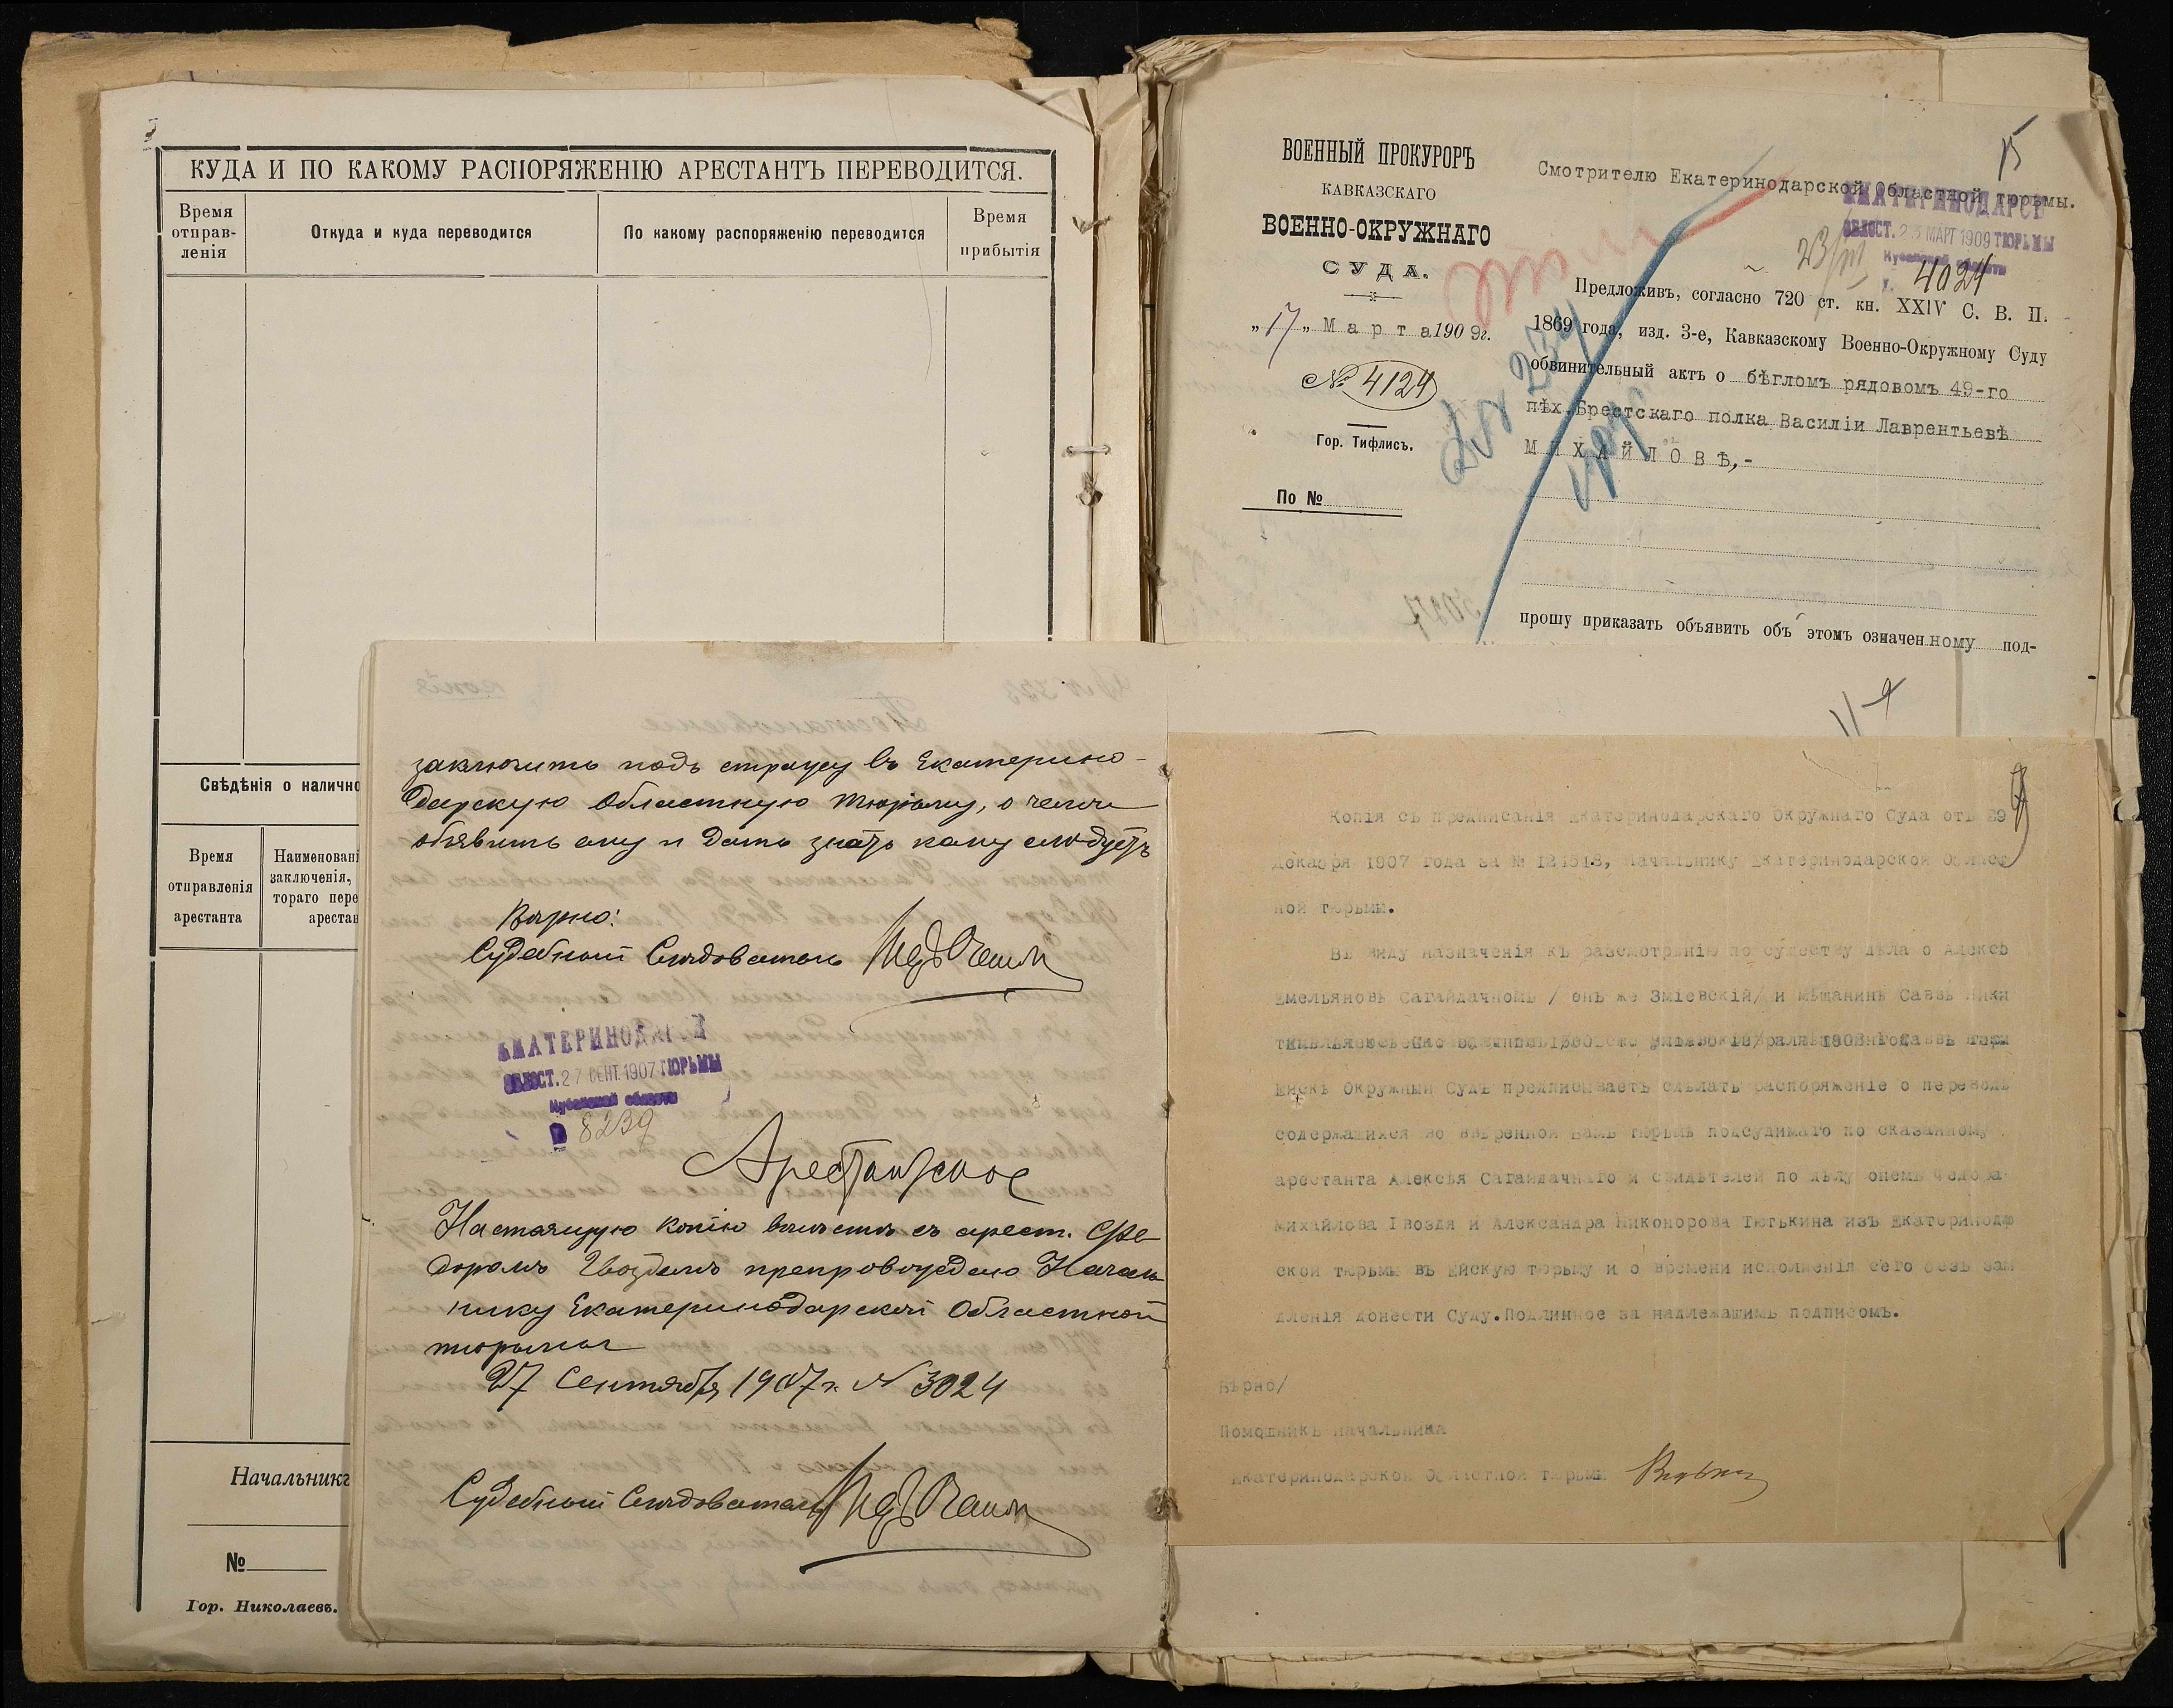 КУДА И ПО КАКОМУ РАСПОРЯЖЕНІЮ АРЕСТАНТЪ ПЕРЕВОДИТСЯ.
Время отправ-ленія
Откуда и куда переводится
По какому распоряженію переводится
Время прибытія
Свѣдѣнія о налично
Время отправленія арестанта
Наименовані
заключенія,
тораго пере
арестан
Начальникъ
№
Гор. Николаевъ.
заключить подъ стражу въ Екатерино-
дарскую Областную тюрьму, о чемъ
объявить ему и дать знать кому слѣдуетъ
Вѣрно:
Судебный Слѣдователь
ЕКАТЕРИНОДАРСКОЙ
ОБЛАСТ. 27 СЕНТ. 1907 ТЮРЬМЫ
Кубанской области
8239
Арестантское
Настоящую копію вмѣстѣ съ арест. Ѳе
доромъ Гвоздемъ препровождаю Началь
нику Екатеринодарской Областной
тюрьмы
27 Сентября 1907 г. № 3024
Судебный Слѣдователь
ВОЕННЫЙ ПРОКУРОРЪ
КАВКАЗСКАГО
ВОЕННО-ОКРУЖНАГО
СУДА.
„17„ Марта 1909г.
№ 4124
Гор. Тифлисъ.
По №
15
Смотрителю Екатеринодарской Областной тюрьмы.
ЕКАТЕРИНОДАРСК
ОБЛАСТ. 23 МАРТ 1909 ТЮРЬМЫ
Кубанской области
23/III
4024
Предложивъ, согласно 720 ст. кн. XXIV С. В. П.
1869 года, изд. 3-е, Кавказскому Военно-Окружному Суду
обвинительный актъ о бѣгломъ рядовомъ 49-го
пѣх. Брестскаго полка Василіи Лаврентьевѣ
МИХАЙЛОВѢ,-
прошу приказать объявить объ этомъ означенному под-
Копія съ предписанія Екатеринодарскаго Окружнаго Суда отъ 29
декабря 1907 года за № Начальнику Екатеринодарской Област
ной тюрьмы.
Въ виду назначенія къ разсмотрѣнію по существу дѣла о Алексѣ
Емельяновѣ Сагайдачномъ / онъ же Зміевскій/ и мѣщанинѣ Саввѣ Ники
1908 года въ гор
Ейскѣ Окружный Судъ предписываетъ сдѣлать распоряженіе о переводѣ
содержащихся во ввѣренной Вамъ тюрьмѣ подсудимаго по сказанному
арестанта Алексѣя Сагайдачнаго и свидѣтелей по дѣлу онемъ Ѳедора
Михайлова Гвоздя и Александра Никонорова Тютькина изъ Екатеринода
ской тюрьмы въ Ейскую тюрьму и о времени исполненія сего безъ зам
дленія донести Суду. Подлинное за надлежащимъ подписомъ.
Вѣрно/
Помощникъ начальника
Екатеринодарской Областной тюрьмы